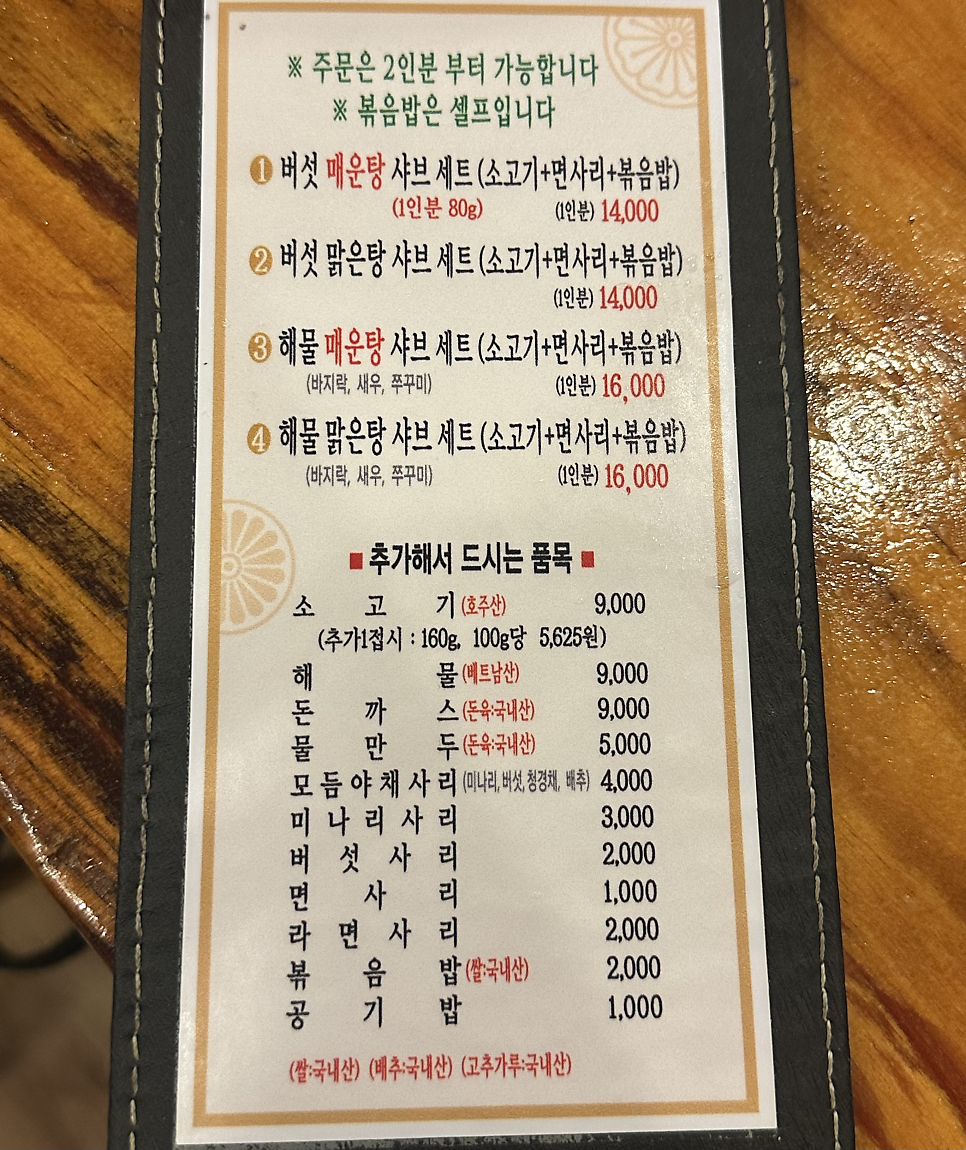 ※ 주문은 2인분 부터 가능합니다
※ 볶음밥은 셀프입니다
1 버섯 매운탕 샤브 세트 (소고기+면사리+볶음밥)
(1인분 80g) (1인분) 14,000
2 버섯 맑은탕 샤브 세트 (소고기+면사리+볶음밥)
(1인분) 14,000
3 해물 매운탕 샤브 세트 (소고기+면사리+볶음밥)
(바지락, 새우, 쭈꾸미) (1인분) 16,000
4 해물 맑은탕 샤브 세트 (소고기+면사리+볶음밥)
(바지락, 새우, 쭈꾸미) (1인분) 16,000
■ 추가해서 드시는 품목 ■
소 고 기 (호주산) 9,000
(추가1접시 : 160g, 100g당 5,625원)
해 물 (베트남산) 9,000
돈 까 스 (돈육:국내산) 9,000
물 만 두 (돈육:국내산) 5,000
모 듬 야 채 사 리 (미나리, 버섯, 청경채, 배추) 4,000
미 나 리 사 리 3,000
버 섯 사 리 2,000
면 사 리 1,000
라 면 사 리 2,000
볶 음 밥 (쌀:국내산) 2,000
공 기 밥 1,000
(쌀:국내산) (배추:국내산) (고추가루:국내산)